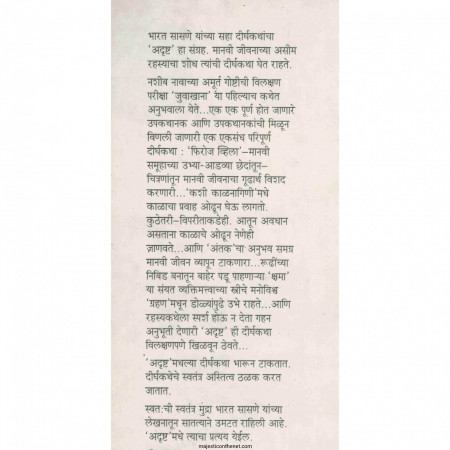 भारत सासणे यांच्या सहा दीर्घकथांचा
'अदृष्ट' हा संग्रह. मानवी जीवनाच्या असीम
रहस्याचा शोध त्यांची दीर्घकथा घेत राहते.
नशीब नावाच्या अमूर्त गोष्टीची विलक्षण
परीक्षा 'जुवाखाना' या पहिल्याच कथेत
अनुभवाला येते...एक एक पूर्ण होत जाणारे
उपकथानक आणि उपकथानकांची मिळून
विणली जाणारी एक एकसंध परिपूर्ण
दीर्घकथा : 'फिरोज व्हिला'–मानवी
समूहाच्या उभ्या-आडव्या छेदांतून–
चित्रणांतून मानवी जीवनाचा गूढार्थ विशद
करणारी...'कशी काळनागिणी'मधे
काळाचा प्रवाह ओढून घेऊ लागतो.
कुठेतरी–विपरीताकडेही. आतून अवधान
असताना काळाचे ओढून नेणेही
जाणवते...आणि 'अंतक'चा अनुभव समग्र
मानवी जीवन व्यापून टाकणारा...रूढींच्या
निबिड बनातून बाहेर पडू पाहणाऱ्या 'क्षमा'
या संयत व्यक्तिमत्त्वाच्या स्त्रीचे मनोविश्व
'ग्रहण'मधून डोळ्यांपुढे उभे राहते...आणि
रहस्यकथेला स्पर्श होऊ न देता गहन
अनुभूती देणारी 'अदृष्ट' ही दीर्घकथा
विलक्षणपणे खिळवून ठेवते...
'अदृष्ट'मधल्या दीर्घकथा भारून टाकतात.
दीर्घकथेचे स्वतंत्र अस्तित्व ठळक करत
जातात.
स्वत:ची स्वतंत्र मुद्रा भारत सासणे यांच्या
लेखनातून सातत्याने उमटत राहिली आहे.
'अदृष्ट'मधे त्याचा प्रत्यय येईल.
majesticonthenet.com